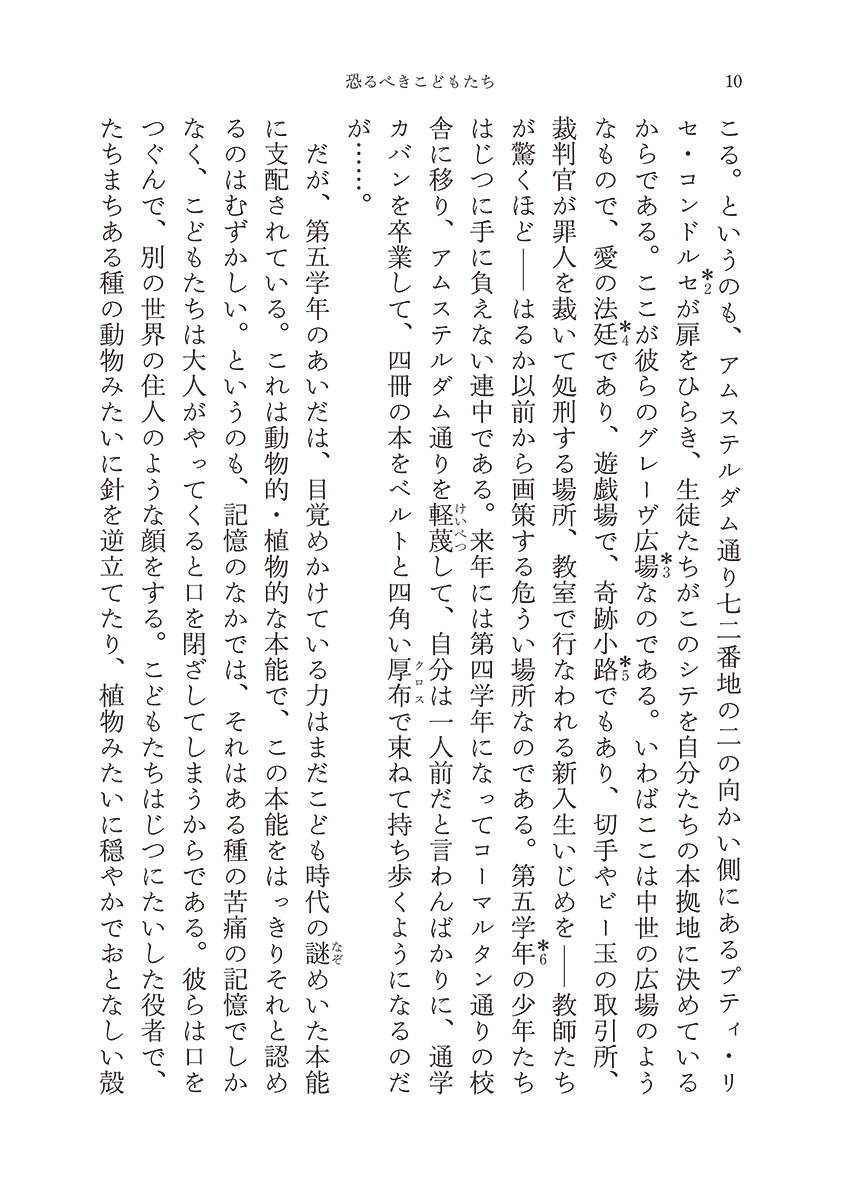 恐るべきこどもたち
10
こる。というのも、アムステルダム通り七二番地の二の向かい側にあるプティ・リ
セ・コンドルセ*2が扉をひらき、生徒たちがこのシテを自分たちの本拠地に決めている
からである。ここが彼らのグレーヴ広場*3なのである。いわばここは中世の広場のよう
なもので、愛の法廷*4であり、遊戯場で、奇跡小路*5でもあり、切手やビー玉の取引所、
裁判官が罪人を裁いて処刑する場所、教室で行なわれる新入生いじめを――教師たち
が驚くほど――はるか以前から画策する危うい場所なのである。第五学年*6の少年たち
はじつに手に負えない連中である。来年には第四学年になってコーマルタン通りの校
舎に移り、アムステルダム通りを軽蔑けいべつして、自分は一人前だと言わんばかりに、通学
カバンを卒業して、四冊の本をベルトと四角い厚布クロスで束ねて持ち歩くようになるのだ
が……。
だが、第五学年のあいだは、目覚めかけている力はまだこども時代の謎なぞめいた本能
に支配されている。これは動物的・植物的な本能で、この本能をはっきりそれと認め
るのはむずかしい。というのも、記憶のなかでは、それはある種の苦痛の記憶でしか
なく、こどもたちは大人がやってくると口を閉ざしてしまうからである。彼らは口を
つぐんで、別の世界の住人のような顔をする。こどもたちはじつにたいした役者で、
たちまちある種の動物みたいに針を逆立てたり、植物みたいに穏やかでおとなしい殻